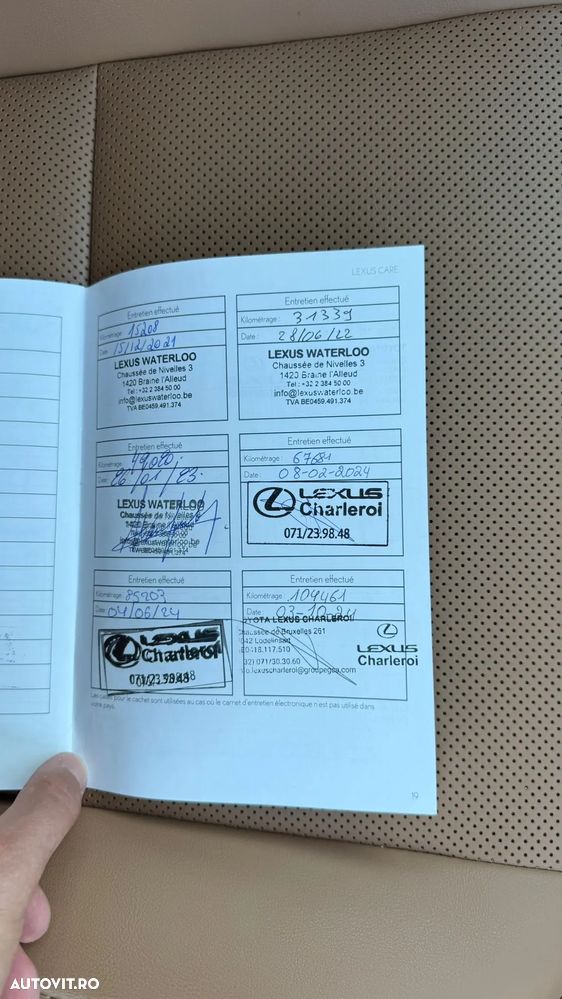 LEXUS CARE
Entretien effectué
Kilométrage : 15208
Date : 15/12/2021
LEXUS WATERLOO
Chaussée de Nivelles 3
1420 Braine l'Alleud
Tel : +32 2 384 50 00
info@lexuswaterloo.be
TVA BE0459.491.374
Entretien effectué
Kilométrage : 31339
Date : 28/06/22
LEXUS WATERLOO
Chaussée de Nivelles 3
1420 Braine l'Alleud
Tel : +32 2 384 50 00
info@lexuswaterloo.be
TVA BE0459.491.374
Entretien effectué
Kilométrage : 49020
Date : 26/01/23
LEXUS WATERLOO
Chaussée de Nivelles
Entretien effectué
Kilométrage : 67681
Date : 08-02-2024
LEXUS
Charleroi
071/23.98.48
Entretien effectué
Kilométrage : 85203
Date : 04/06/24
LEXUS
Charleroi
071/23.98.48
Entretien effectué
Kilométrage : 104461
Date : 03-10-24
OYOTA LEXUS CHARLEROI
haussée de Bruxelles 261
042 Lodelinsart
32) 071/30.30.60
o.lexuscharleroi@groupegba.com
LEXUS
Charleroi
Les cases pour le cachet sont utilisées au cas où le carnet d'entretien électronique n'est pas utilisé dans
votre pays.
19
AUTOVIT.RO